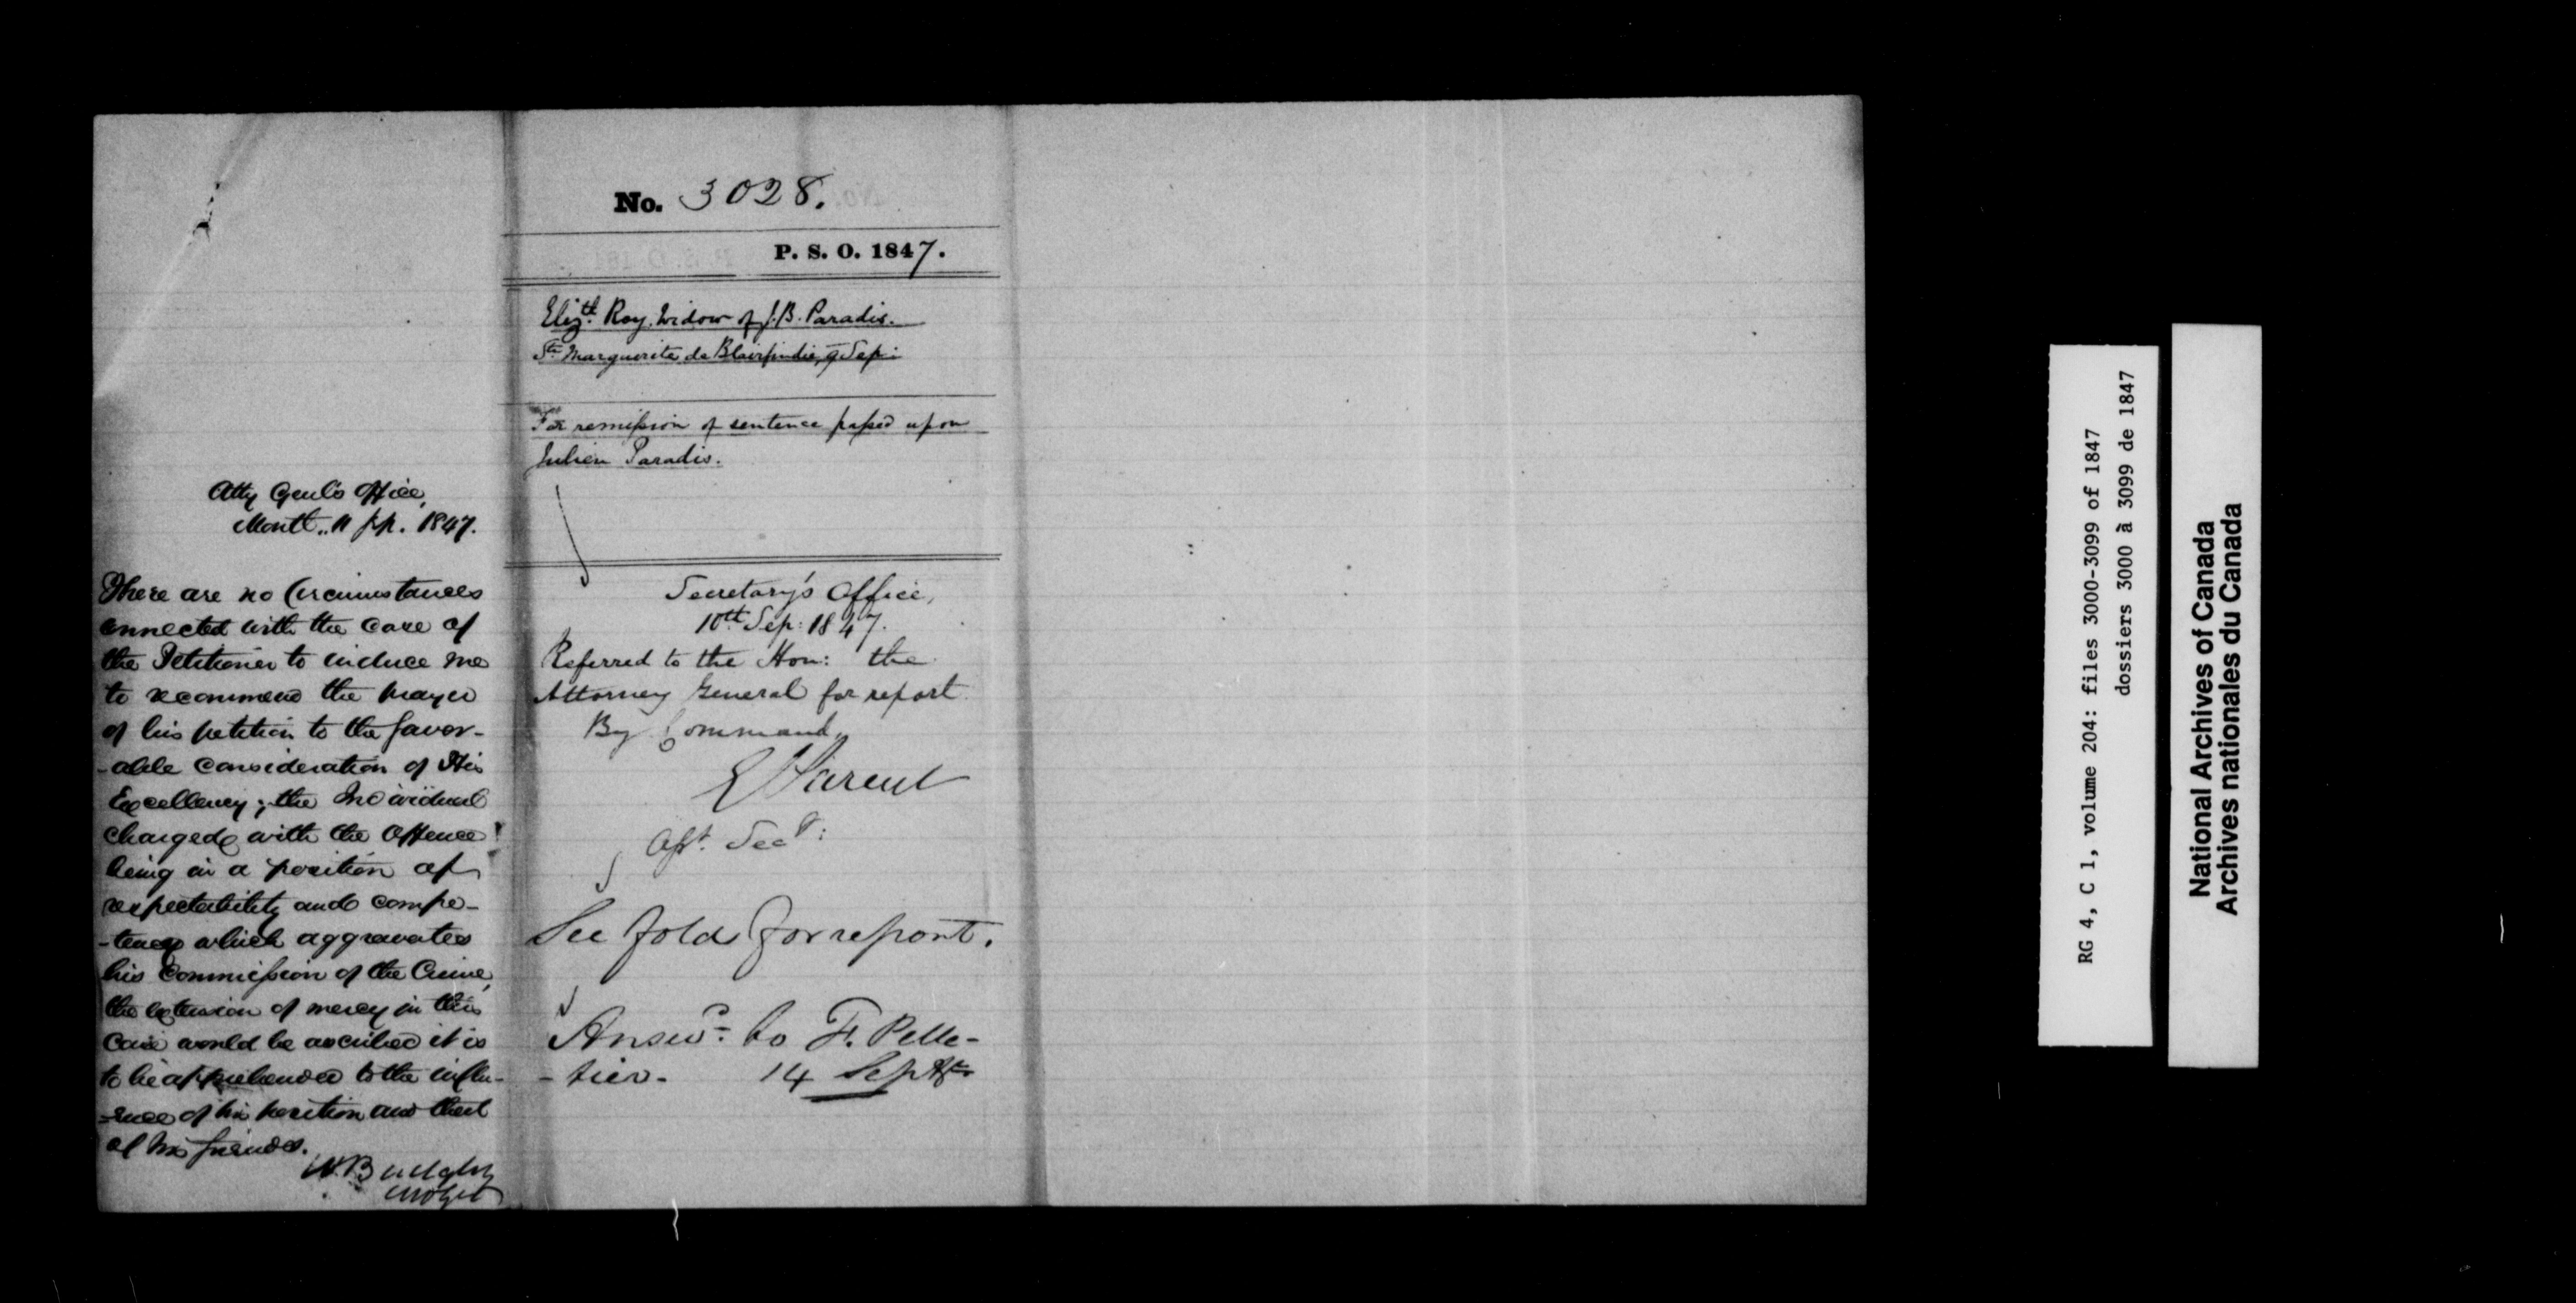 Atty Genl's Office,
Montl. 11 Sep. 1847.
There are no Circumstances
connected with the case of
the Petitioner to induce me
to recommend the prayer
of his petition to the favor-
-able consideration of His
Excellency; the Individual
charged with the Offence
being in a position of
respectability and compe-
-tency which aggravates
his Commission of the Crime,
the extension of mercy in this
Case would be ascribed it is
to be apprehended to the influ-
-ence of his position and that
of his friends.
No. 3028.
P. S. O. 1847.
Elizth. Roy. Widow of J. B. Paradis.
Ste Marguerite de Blairfindie, 9 Sep:
For remission of sentence passed upon
Julien Paradis.
Secretary's Office,
10th Sep: 1847.
Referred to the Hon: the
Attorney General for report
By Command,
E Parent
Asst. Secy:
See fold for report.
Answd. to F. Pelle-
-tier. 14 Septr
RG 4, C 1, volume 204: files 3000-3099 of 1847
dossiers 3000 à 3099 de 1847
National Archives of Canada
Archives nationales du Canada